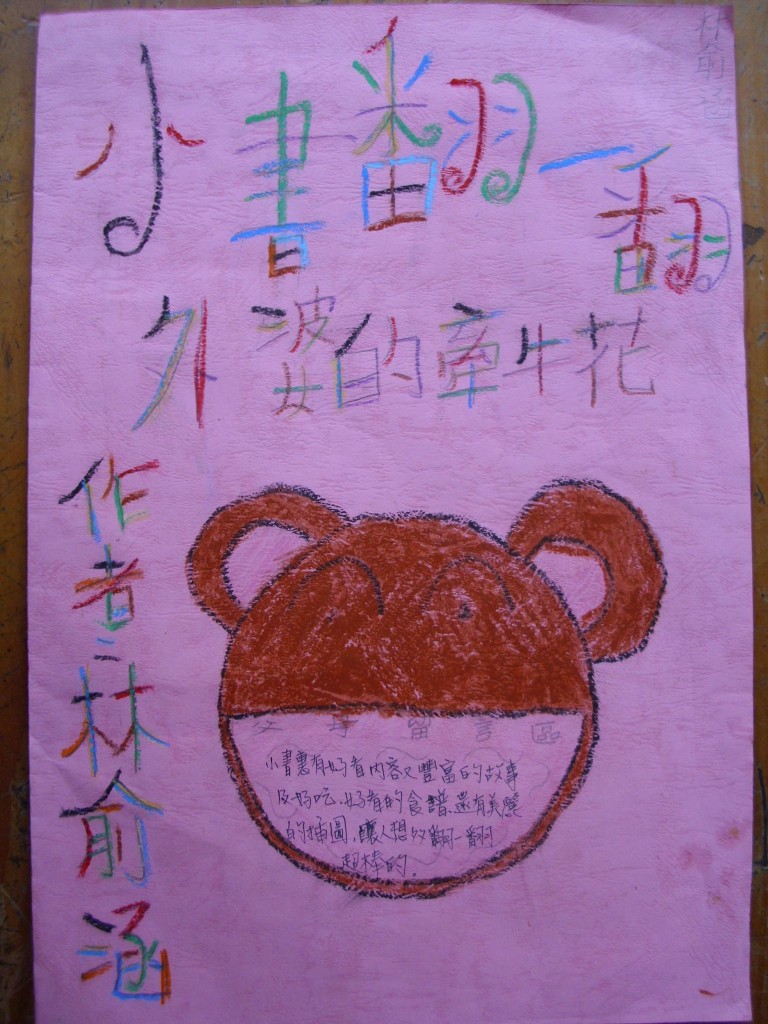 林俞涵
小書翻一翻
外婆的牽牛花
作者:林俞涵
父母留言區
小書裏有好看內容又豐富的故事
及好吃、好看的食譜、還有美麗
的插圖,讓人想好翻一翻
超棒的.